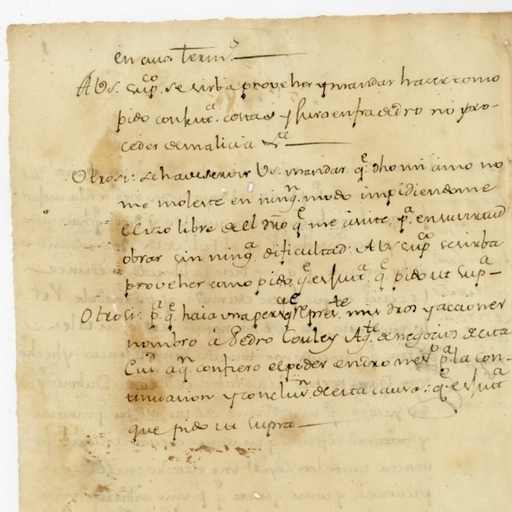 en cuios term.s
A Vs. sup.co se sirba proveher y mandar hacer como
pido con just.a costas y juro en fra de dro no pro-
ceder de malicia &.a
Otrosi: se ha de servir Vs. mandar q.e dho mi amo no
me moleste en ning.n modo impidiendome
el uso libre de el dño q.e me asiste, p.a en su virtud
obrar sin ning.a dificultad: A Vs. sup.co se sirba
proveher como pido q.e es just.a q.e pido ut sup.a
Otrosi: p.a q.e haia una pers.a q.e represte. mis dros y acciones
nombro á Pedro Ag.te de negocios de esta
Ciu.d a q.n confiero el poder en dro nes.o p.a la con-
tinuacion y conclus.n de esta causa: q.e es just.a
que pido ut supra